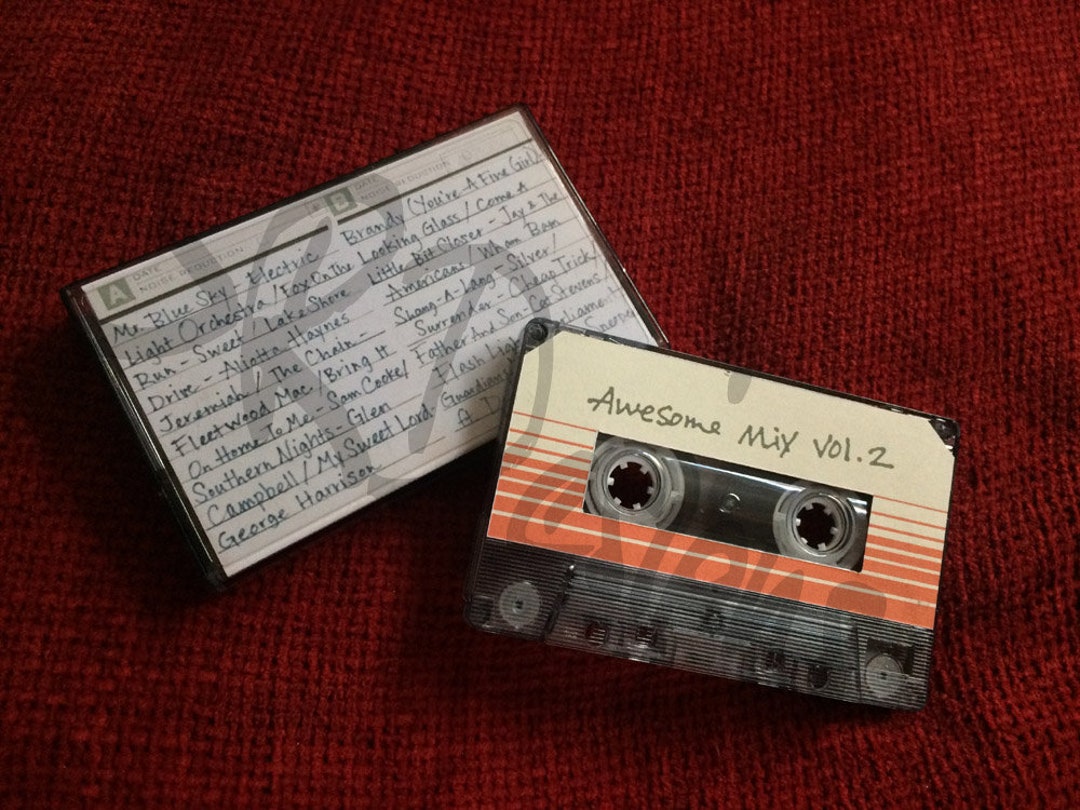 A DATE
NOISE REDUCTION
Mr. Blue Sky - Electric
Light Orchestra / Fox On The
Run - Sweet / Lake Shore
Drive - Aliotta Haynes
Jeremiah / The Chain -
Fleetwood Mac / Bring It
On Home To Me - Sam Cooke /
Southern Nights - Glen
Campbell / My Sweet Lord -
George Harrison
B DATE
NOISE REDUCTION
Brandy (You're A Fine Girl)
Looking Glass / Come A
Little Bit Closer - Jay & The
Americans / Wham Bam
Shang-A-Lang - Silver /
Surrender - Cheap Trick /
Father And Son - Cat Stevens /
Flash
ft.
Awesome Mix Vol.2